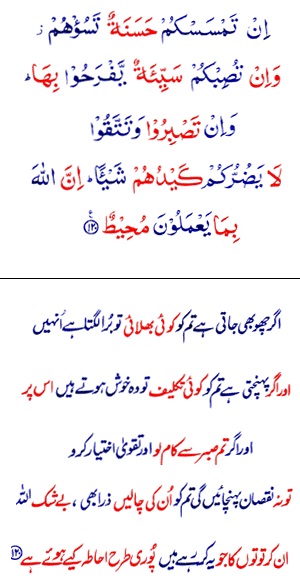 اِنْ تَمْسَسْكُمْ حَسَنَةٌ تَسُؤْهُمْ ز
وَاِنْ تُصِبْكُمْ سَيِّئَةٌ يَّفْرَحُوْا بِهَا ؕ
وَاِنْ تَصْبِرُوْا وَتَتَّقُوْا
لَا يَضُرُّكُمْ كَيْدُهُمْ شَيْـًٔا ؕ اِنَّ اللّٰهَ
بِمَا يَعْمَلُوْنَ مُحِيْطٌ ﴿۱۲۰﴾
اگر چھو بھی جاتی ہے تم کو کوئی بھلائی تو بُرا لگتا ہے اُنہیں
اور اگر پہنچتی ہے تم کو کوئی تکلیف تو وہ خوش ہوتے ہیں اس پر
اور اگر تم صبر سے کام لو اور تقویٰ اختیار کرو
تو نہ نقصان پہنچائیں گی تم کو اُن کی چالیں ذرا بھی، بے شک اللہ
ان کرتوتوں کا جو یہ کر رہے ہیں پُوری طرح احاطہ کیے ہوئے ہے ﴿۱۲۰﴾